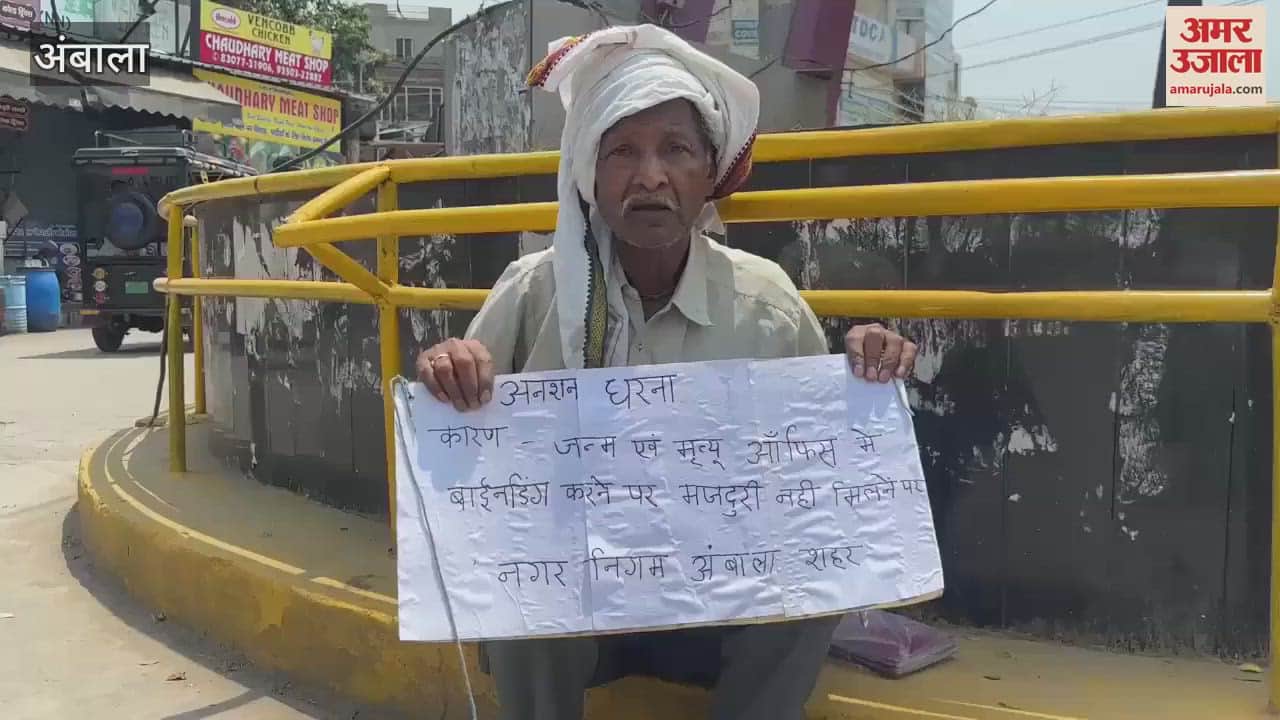 अंबाला
VENCOBB
CHICKEN
CHAUDHARY MEAT SHOP
CHAUDHARY MEAT SHOP
अमर
उजाला
amarujala.com
अनशन धरना
कारण - जन्म एवं मृत्यू ऑफिस मे
बाईनडिंग करने पर मजदुरी नही मिलने पर
नगर निगम अंबाला शहर